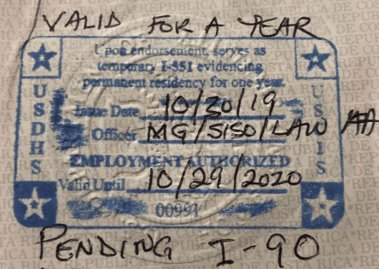 VALID FOR A YEAR
Upon endorsement, serves as
temporary I-551 evidencing
permanent residency for one year.
Issue Date 10/30/19
Officer MG/SISO/LAW
EMPLOYMENT AUTHORIZED
Valid Until 10/29/2020
00991
USDHS
USCIS
PENDING I-90